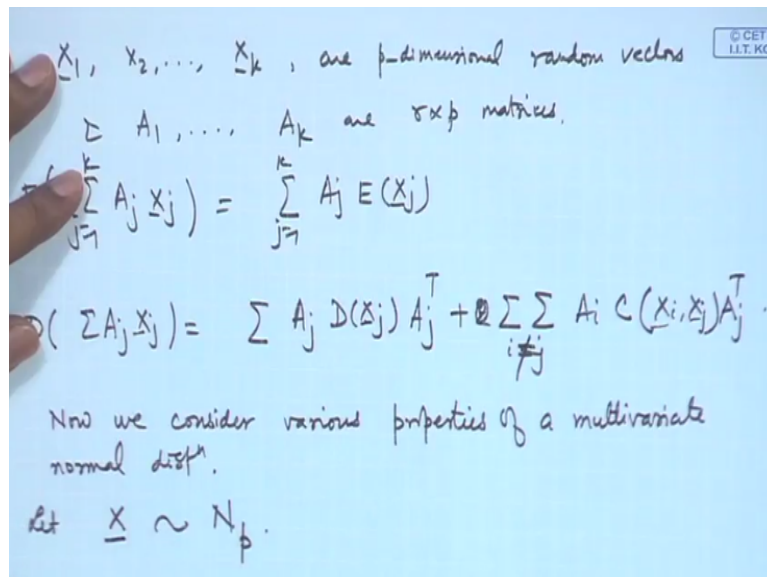 © CET
I.I.T. KG
X̲1, X2, ..., X̲k, are p-dimensional random vectors
Σ A1, ...., Ak are r×p matrices.
(∑_{j=1}^{k} Aj X̲j) = ∑_{j=1}^{k} Aj E(X̲j)
D( ΣAj X̲j) = ∑ Aj D(X̲j) Aj^T + ∑∑_{i≠j} Ai C(X̲i, X̲j) Aj^T .
Now we consider various properties of a multivariate
normal distⁿ.
Let X̲ ~ Np.